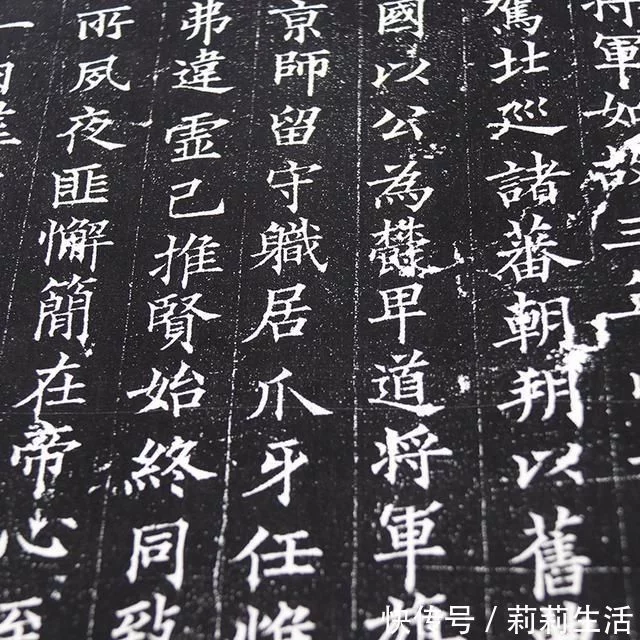 将軍如故三年
駕北巡諸蕃朝朔以舊
國以公為甲道将軍
京師留守軄居爪牙任惟
弗違虛己推賢始終同致
所夙夜匪懈簡在帝心至
快传号 / 莉莉生活